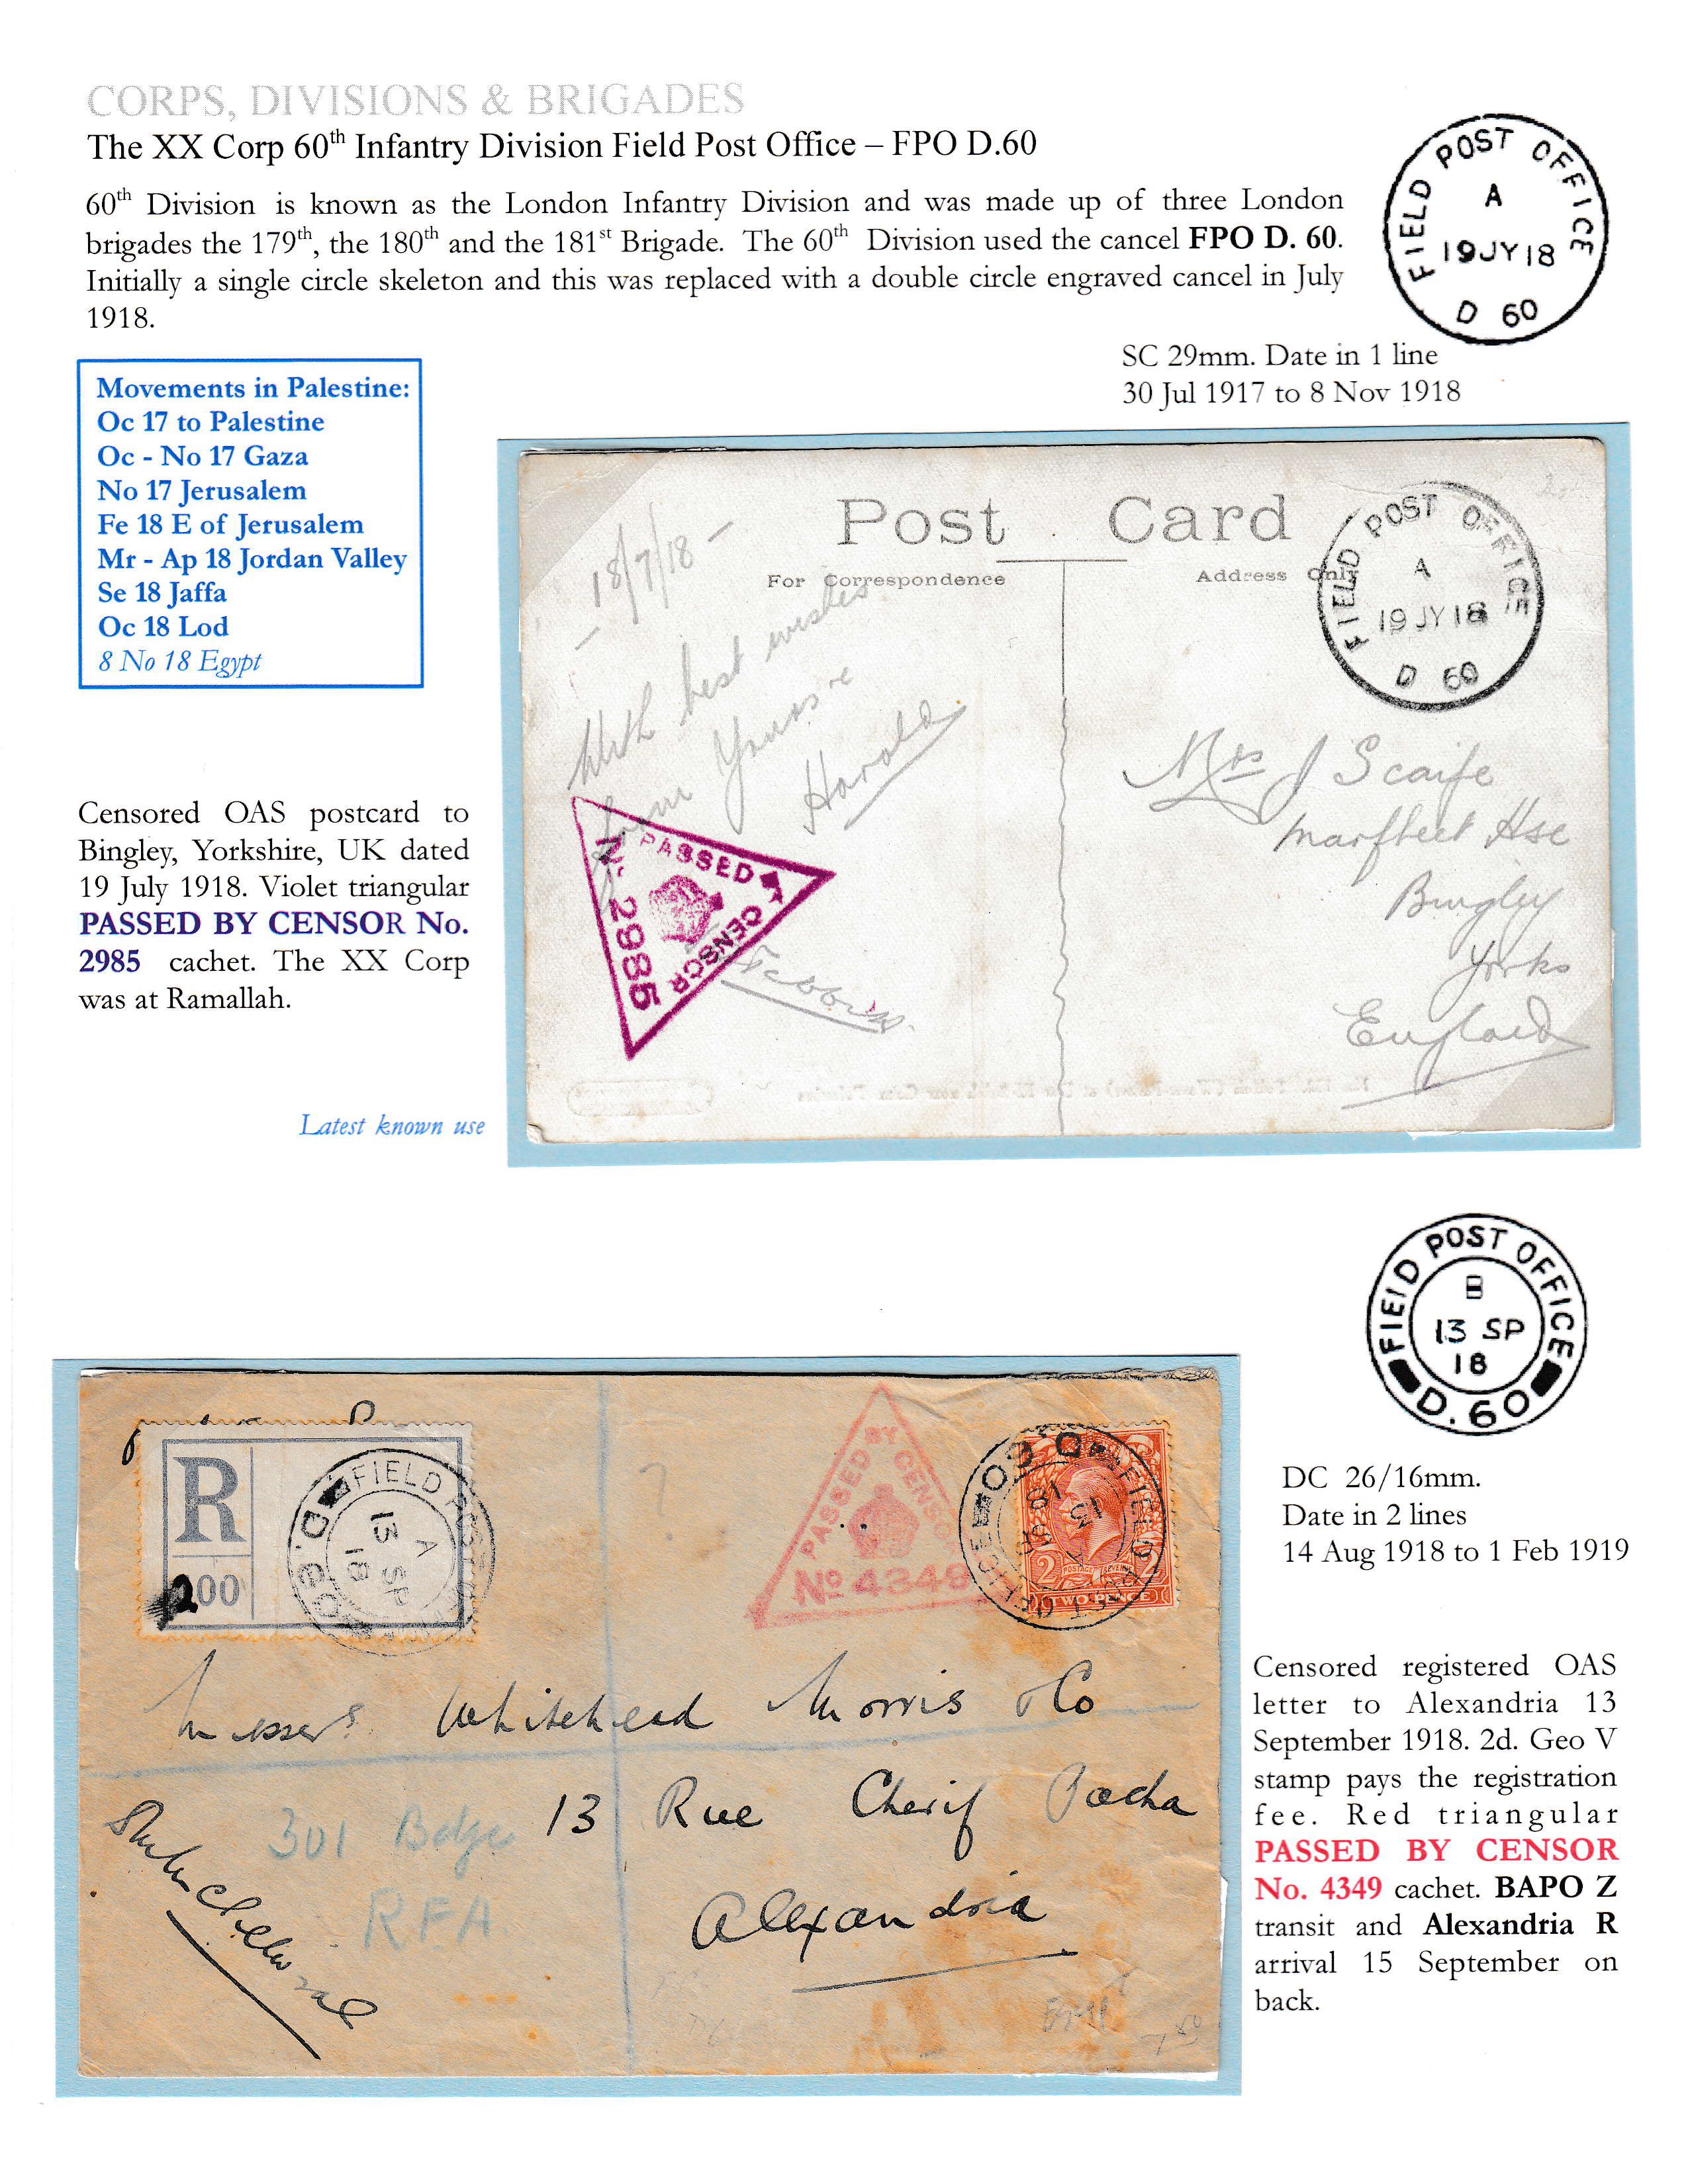 CORPS, DIVISIONS & BRIGADES
The XX Corp 60th Infantry Division Field Post Office – FPO D.60
60th Division is known as the London Infantry Division and was made up of three London
brigades the 179th, the 180th and the 181st Brigade. The 60th Division used the cancel FPO D. 60.
Initially a single circle skeleton and this was replaced with a double circle engraved cancel in July
1918.
FIELD POST OFFICE
A
19 JY 18
D 60
SC 29mm. Date in 1 line
30 Jul 1917 to 8 Nov 1918
Movements in Palestine:
Oc 17 to Palestine
Oc - No 17 Gaza
No 17 Jerusalem
Fe 18 E of Jerusalem
Mr - Ap 18 Jordan Valley
Se 18 Jaffa
Oc 18 Lod
8 No 18 Egypt
Post Card
For Correspondence
Address Only
FIELD POST OFFICE
A
19 JY 18
D 60
- 18/7/18 -
With best wishes
from Yours
Harold
PASSED CENSOR
No 2985
Mrs J Scaife
Hse
Bingley
Yorks
England
Censored OAS postcard to
Bingley, Yorkshire, UK dated
19 July 1918. Violet triangular
PASSED BY CENSOR No.
2985 cachet. The XX Corp
was at Ramallah.
Latest known use
FIELD POST OFFICE
B
13 SP
18
D.60
DC 26/16mm.
Date in 2 lines
14 Aug 1918 to 1 Feb 1919
R
FIELD POST
A
13 SP
18
D.60
PASSED BY CENSOR
No 4349
FIELD POST OFFICE
A
13 SP
18
D.60
2
POSTAGE REVENUE
TWO PENCE
Messrs Whitehead Morris & Co
13 Rue Cherif Pacha
Alexandria
301 Bdge
RFA
Egypt
Censored registered OAS
letter to Alexandria 13
September 1918. 2d. Geo V
stamp pays the registration
fee. Red triangular
PASSED BY CENSOR
No. 4349 cachet. BAPO Z
transit and Alexandria R
arrival 15 September on
back.